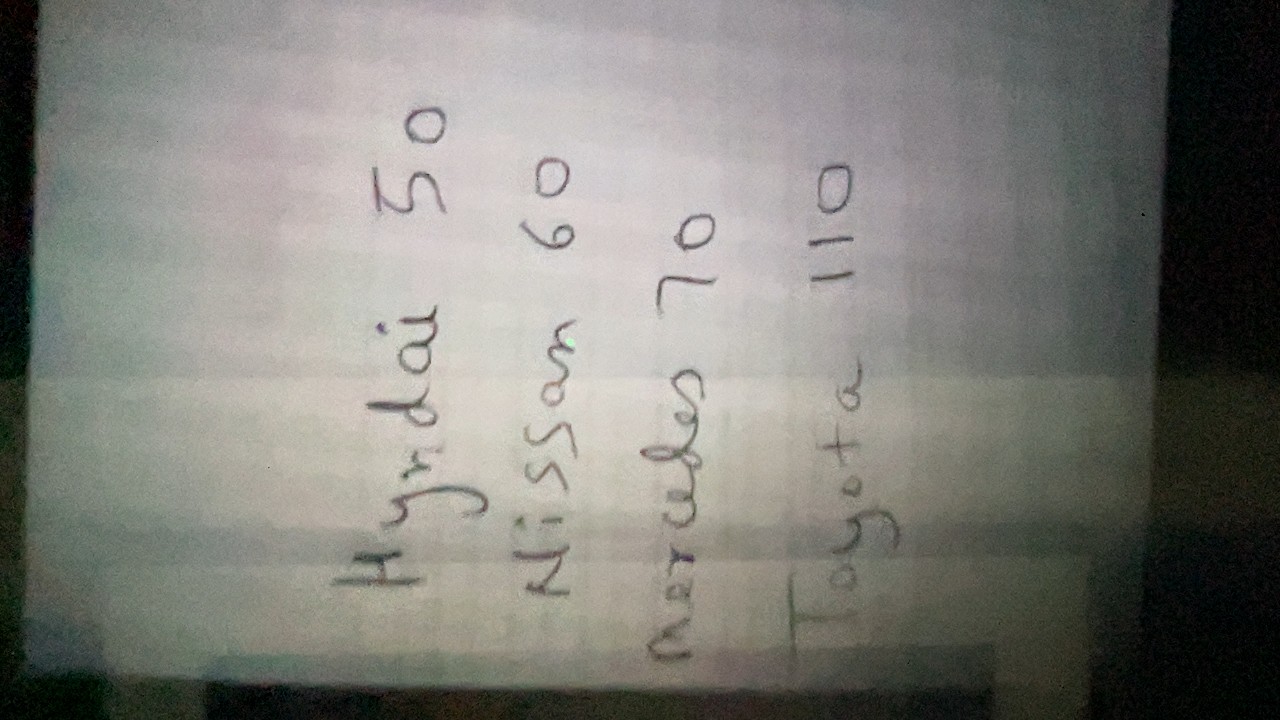 Hyndai 50
Nissan 60
mercedes 70
Toyota 110